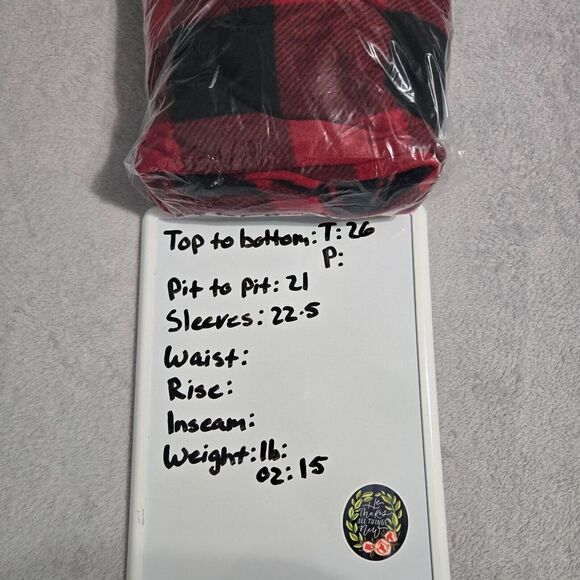 Top to bottom: T: 26
P:
Pit to Pit: 21
Sleeves: 22.5
Waist:
Rise:
Inseam:
Weight: lb:
oz: 15
He
makes
ALL THINGS
New